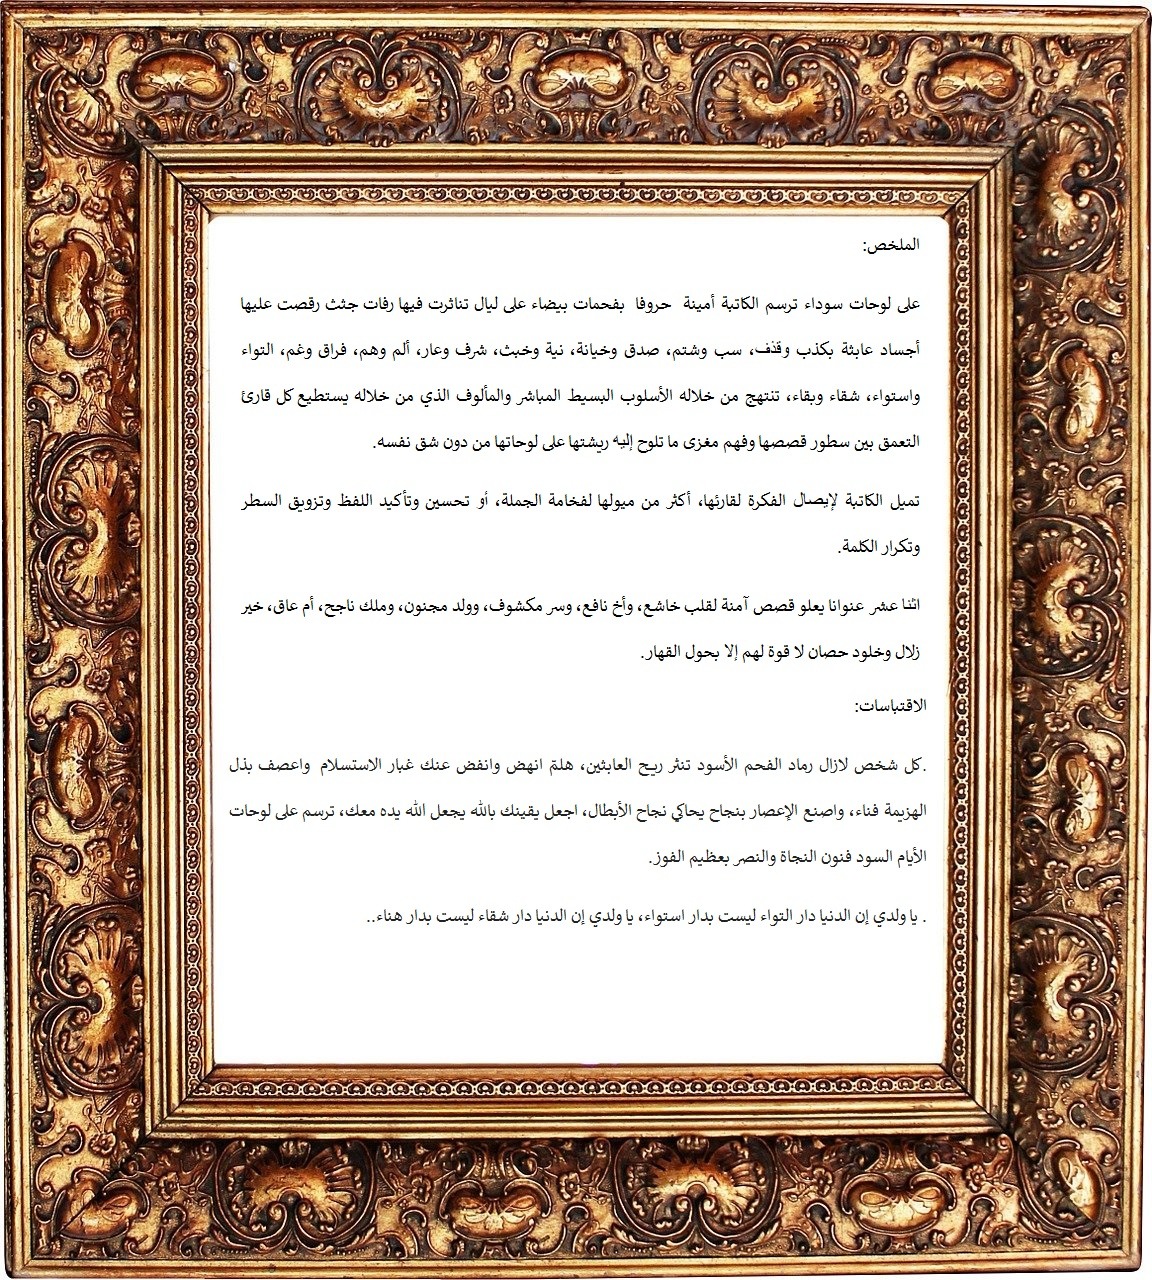 الملخص:
على لوحات سوداء ترسم الكاتبة أمينة حروفا بفحمات بيضاء على ليال تناثرت فيها رفات جثث رقصت عليها
أجساد عابثة بكذب وقذف، سب وشتم، صدق وخيانة، نية وخبث، شرف وعار، ألم وهم، فراق وغم، التواء
واستواء، شقاء وبقاء، تنتهج من خلاله الأسلوب البسيط المباشر والمألوف الذي من خلاله يستطيع كل قارئ
التعمق بين سطور قصصها وفهم مغزى ما تلوح إليه ريشتها على لوحاتها من دون شق نفسه.
تميل الكاتبة لإيصال الفكرة لقارئها، أكثر من ميولها لفخامة الجملة، أو تحسين وتأكيد اللفظ وتزويق السطر
وتكرار الكلمة.
اثنا عشر عنوانا يعلو قصص آمنة لقلب خاشع، وأخ نافع، وسر مكشوف، وولد مجنون، وملك ناجح، أم عاق، خير
زلال وخلود حصان لا قوة لهم إلا بحول القهار.
الاقتباسات:
.كل شخص لازال رماد الفحم الأسود تنثر ريح العابثين، هلمّ انهض وانفض عنك غبار الاستسلام واعصف بذل
الهزيمة فناء، واصنع الإعصار بنجاح يحاكي نجاح الأبطال، اجعل يقينك بالله يجعل الله يده معك، ترسم على لوحات
الأيام السود فنون النجاة والنصر بعظيم الفوز.
. يا ولدي إن الدنيا دار التواء ليست بدار استواء، يا ولدي إن الدنيا دار شقاء ليست بدار هناء..